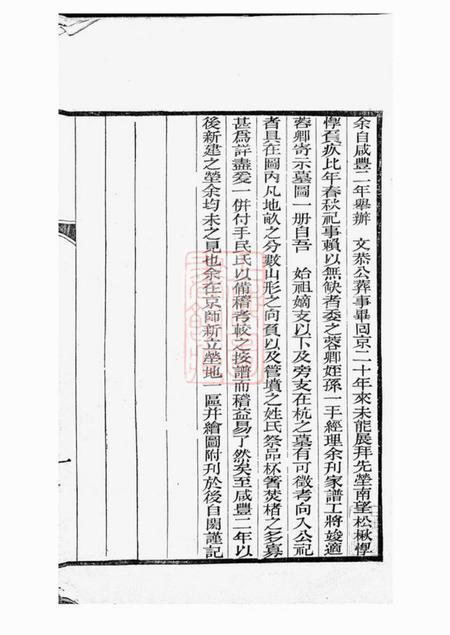 余自咸豐二年舉辦　文恭公葬事畢囘京二十年來未能展拜先塋南望松楸悸
悸負疚比年春秋祀事賴以無缺者委之蓉卿姪孫一手經理余刊家譜工將竣適
蓉卿寄示墓圖一册自吾　始祖嫡支以下及旁支在杭之墓有可徵考向入公祀
者具在圖內凡地畝之分數山形之向負以及管墳之姓氏祭品杯箸焚楮之多寡
甚爲詳盡爰一併付手民氏以備稽考較之按譜而稽益易了然矣至咸豐二年以
後新建之塋余均未之見也余在京師新立塋地一區并繪圖附刊於後自閎謹記
一